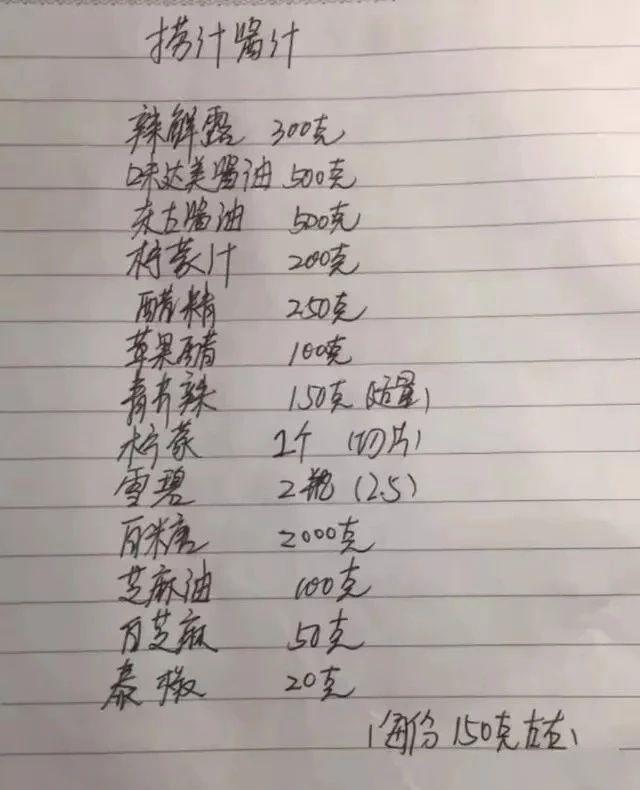 捞汁酱汁
辣鲜露 300克
味达美酱油 500克
东古酱油 500克
柠蒙汁 200克
醋精 250克
苹果醋 100克
青芥辣 150克（适量）
柠蒙 2个（切片）
雪碧 2瓶（2.5）
白米唐 2000克
芝麻油 100克
白芝麻 50克
泰椒 20克
（每份150克左右）